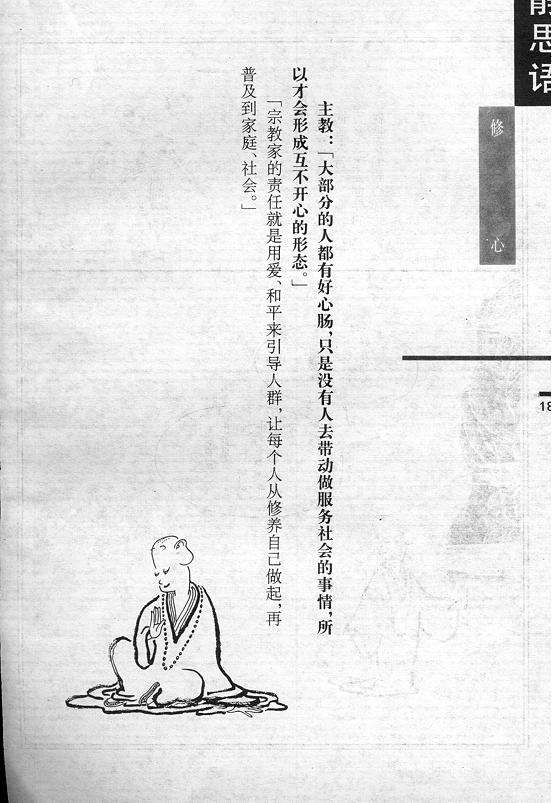 静思语
修心
18
主教：「大部分的人都有好心肠，只是没有人去带动做服务社会的事情，所
以才会形成互不开心的形态。」
「宗教家的责任就是用爱、和平来引导人群，让每个人从修养自己做起，再
普及到家庭、社会。」